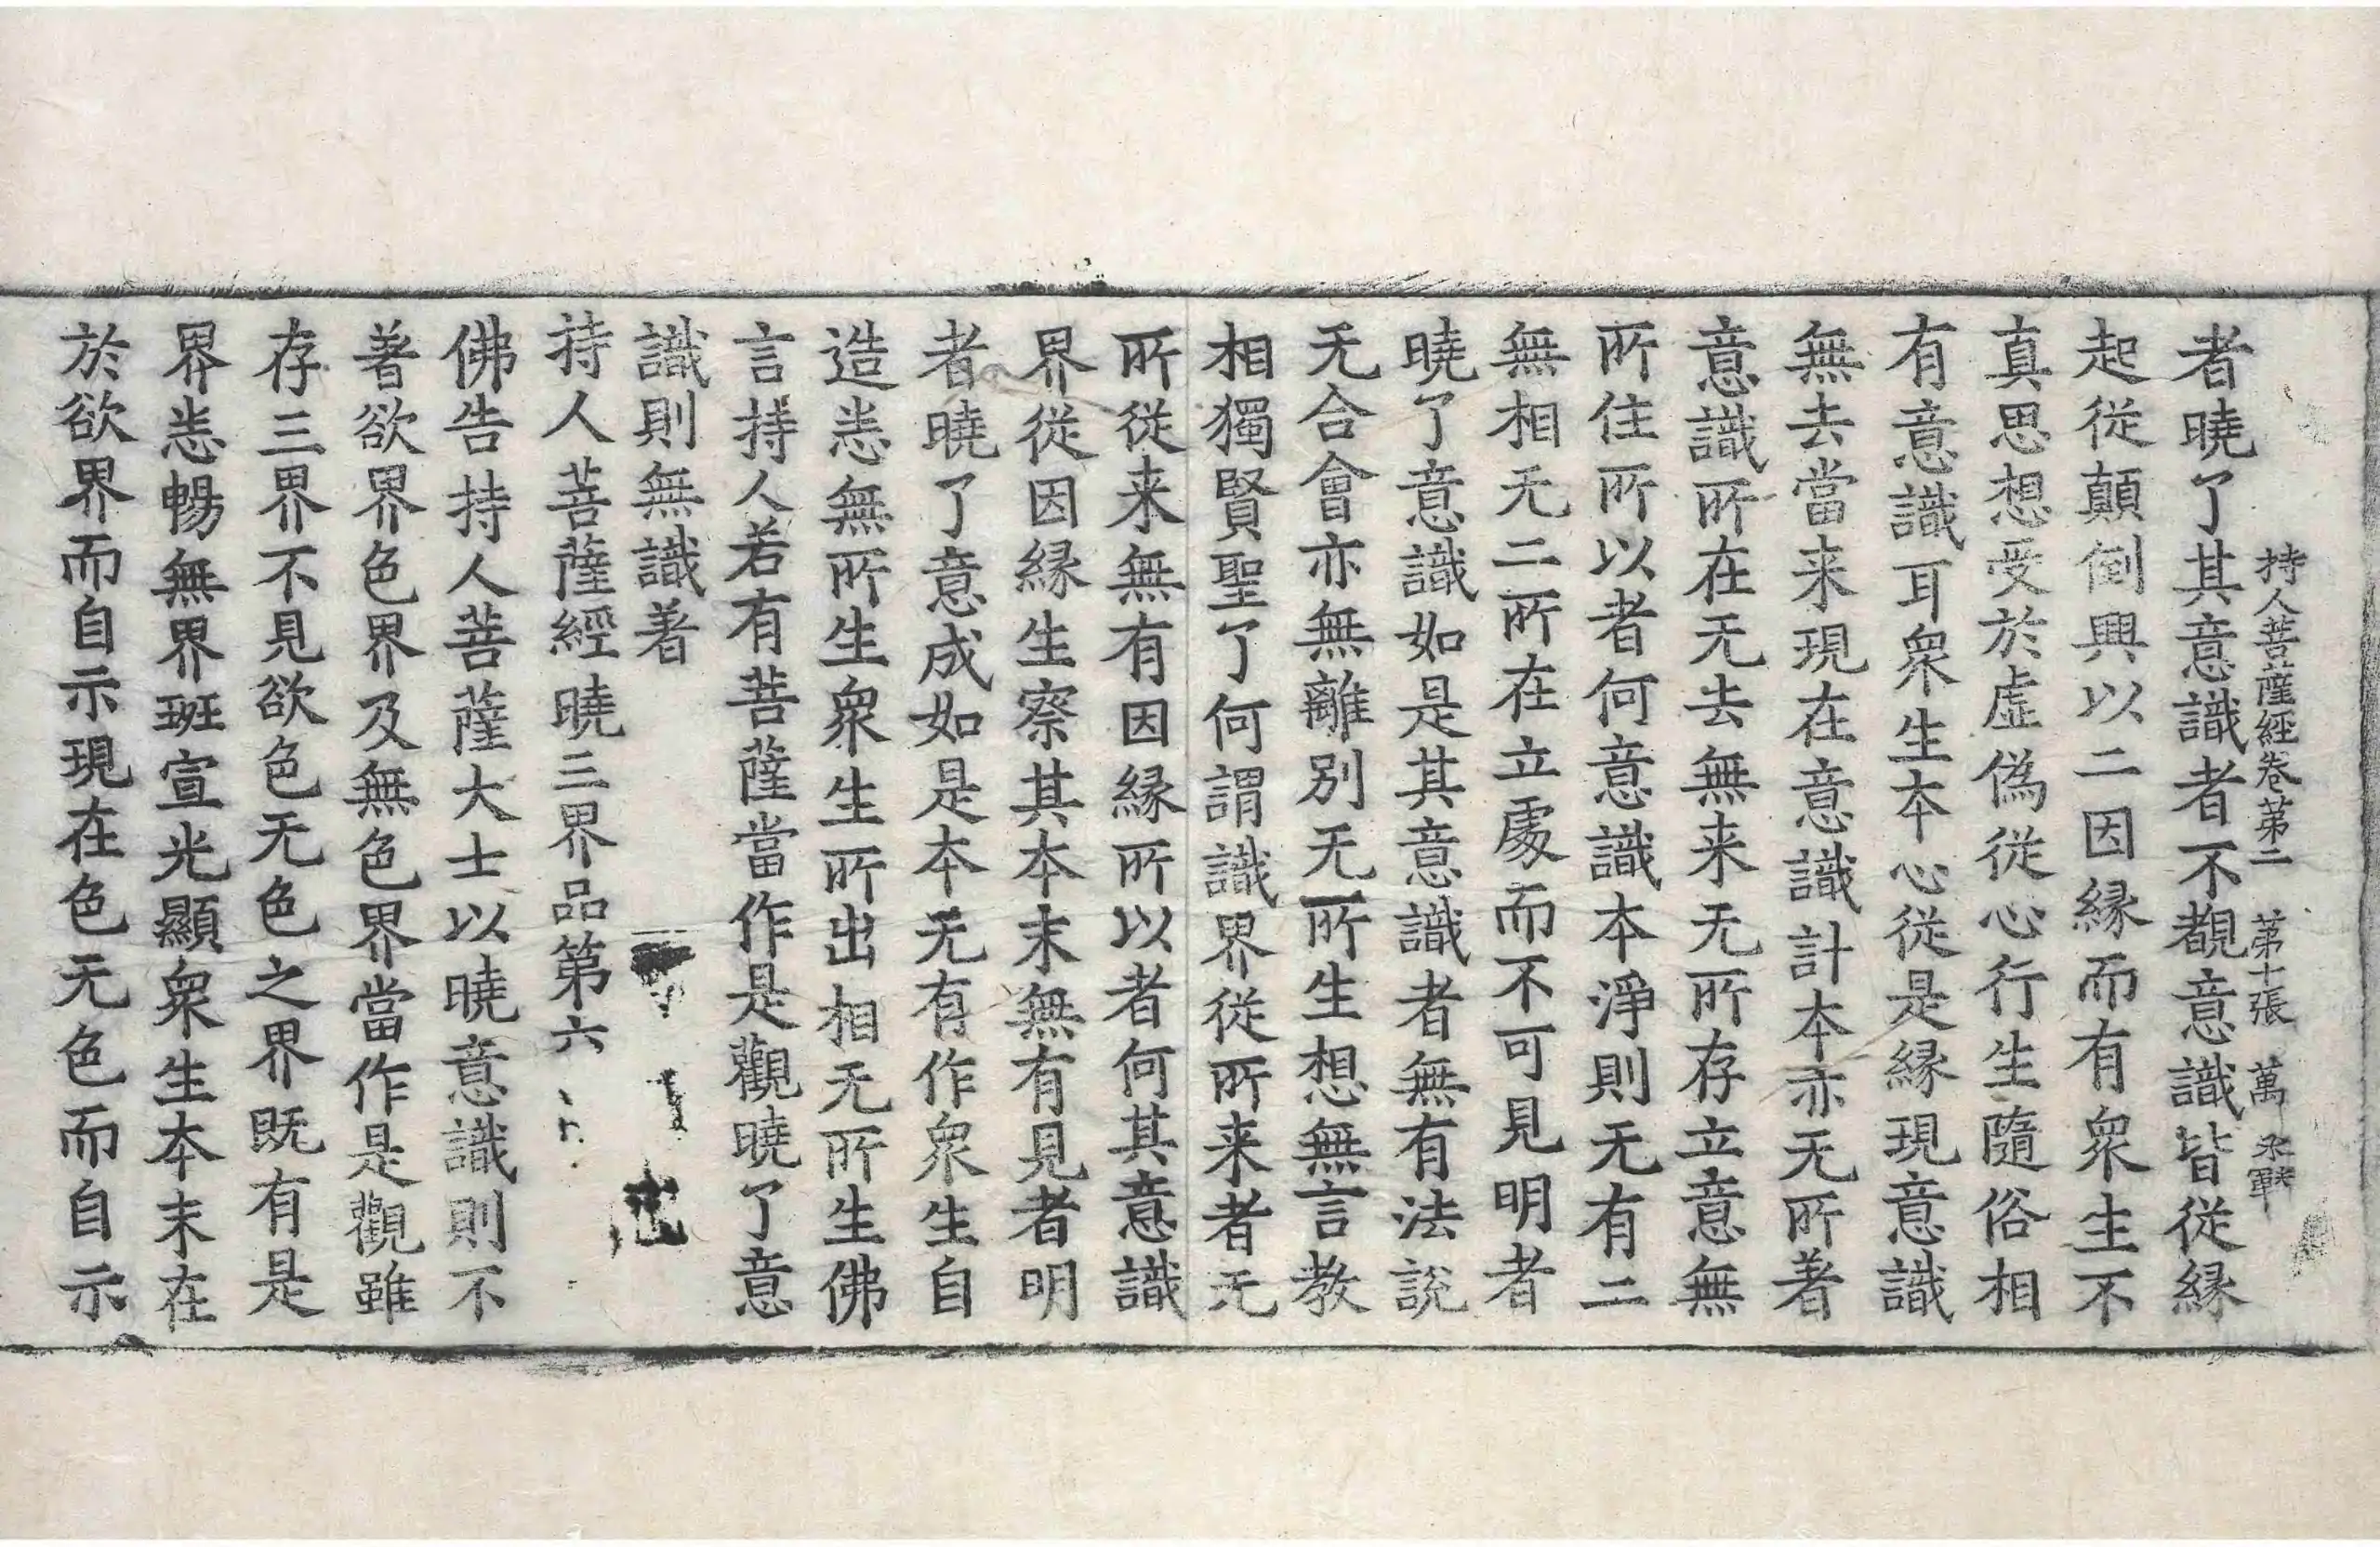 持人菩薩經卷第二 第十張 萬
者曉了其意識者不覩意識皆從緣
起從顛倒興以二因緣而有衆生不
真思想受於虛偽從心行生隨俗相
有意識耳衆生本心從是緣現意識
無去當来現在意識計本亦无所著
意識所在无去無来无所存立意無
所住所以者何意識本淨則无有二
無相无二所在立處而不可見明者
曉了意識如是其意識者無有法說
无合會亦無離別无所生想無言教
相獨賢聖了何謂識界從所来者无
所從来無有因緣所以者何其意識
界從因緣生察其本末無有見者明
者曉了意成如是本无有作衆生自
造恙無所生衆生所出相无所生佛
言持人若有菩薩當作是觀曉了意
識則無識著
持人菩薩經曉三界品第六
佛告持人菩薩大士以曉意識則不
著欲界色界及無色界當作是觀雖
存三界不見欲色无色之界既有是
界恙暢無界班宣光顯衆生本末在
於欲界而自示現在色无色而自示